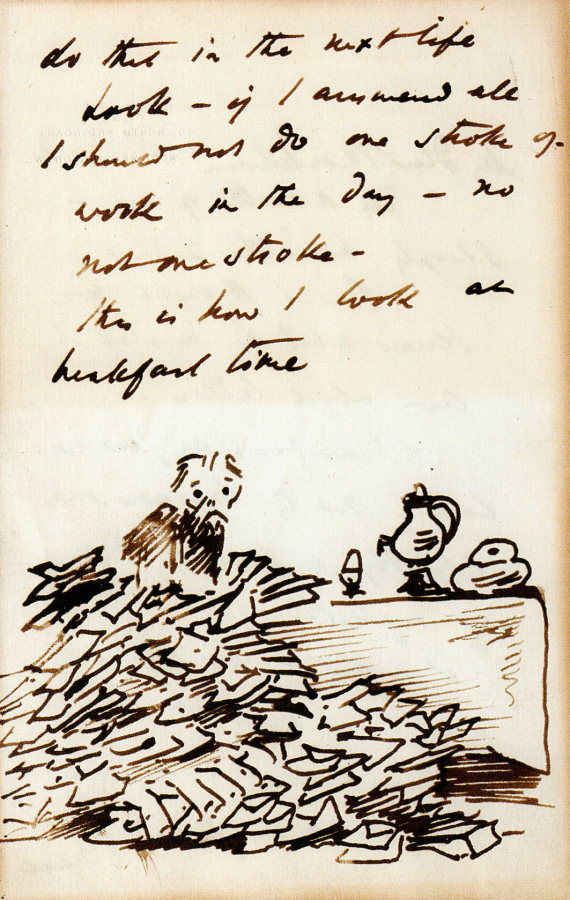 do this in the next life
Look – if I answered all
I should not do one stroke of
work in the day – no
not one stroke –
this is how I look at
breakfast time